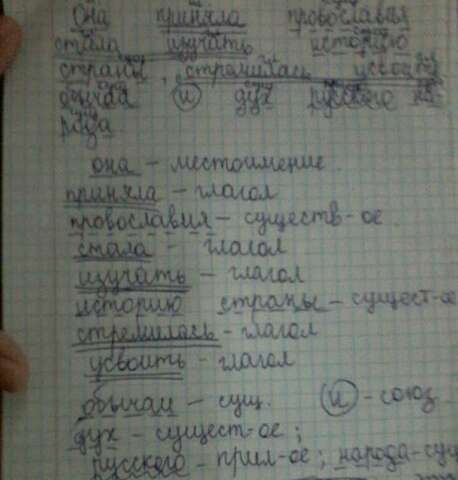 Она приняла провославия
стала изучать историю
страны, стремилась усвоить
обычаа и дух русского на
рода
она – местоимение
приняла – глагол
провославия – существ-ое
стала – глагол
изучать – глагол
историю страны – сущест-ое
стремилась – глагол
усвоить – глагол
обычаи – сущ. и – союз
дух – сущест-ое;
русского – прил-ое; народа – сущ